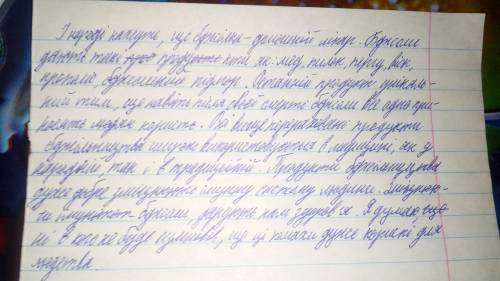 І народі кажуть, що бджола - домашній лікар. Бджоли
дають такі продукти, які як: мед, пилок, пергу, віск,
прополіс, бджолиний підмор. Останній продукт унікаль-
ний тим, що навіть після своєї смерті бджоли все одно при-
носять людям користь. Всі вище перераховані продукти
бджільництва широко використовуються в медицині, як у
народній, так і в традиційній. Продукти бджільництва
дуже добре зміцнюють імунну систему людини. Зміцнюю-
чи імунітет бджоли, дарують нам здоров'я. Я думаю, що
ні в кого не буде сумнівів, що ці комахи дуже корисні для
людства.